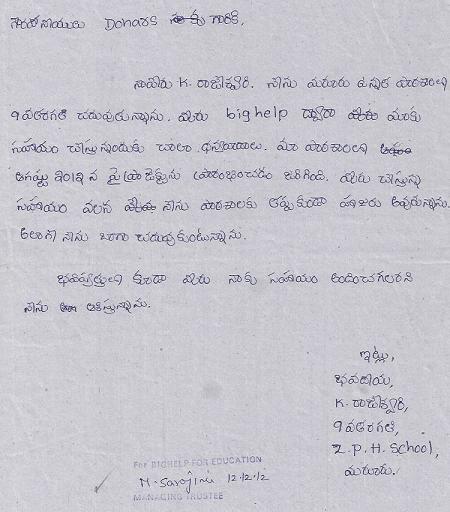 గౌరవనీయులు Donars కు గారికి,
నాపేరు K. రాజేశ్వరి. నేను మరూరు ఉన్నత పాఠశాలలో
9 వతరగతి చదువుతున్నాను. మీరు bighelp ద్వారా మాకు
సహాయం చేస్తున్నందుకు చాలా ధన్యవాదాలు. మా పాఠశాలలో
ఆగష్టు 2012 న పై ప్రాజెక్టును ప్రారంభించడం జరిగింది. మీరు చేస్తున్న
సహాయం వలన నేను పాఠశాలకు తప్పకుండా హాజరు అవుతున్నాను.
అలాగే నేను బాగా చదువుకుంటున్నాను.
భవిష్యత్తులో కూడా మీరు నాకు సహాయం అందించగలరని
నేను ఆశిస్తున్నాను.
ఇట్లు,
భవదీయ,
K. రాజేశ్వరి,
9 వతరగతి,
Z.P.H. School,
మరూరు.
For BIGHELP FOR EDUCATION
M. Sarojini 12.12.12
MANAGING TRUSTEE